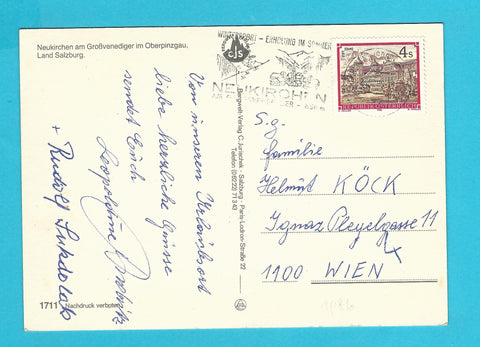 Neukirchen am Großvenediger im Oberpinzgau,
Land Salzburg.
WINTERSPORT - ERHOLUNG IM SOMMER
NEUKIRCHEN
4 S
REPUBLIK ÖSTERREICH
Von unserem Urlaubsort
liebe herzliche Grüsse
sendet Euch
Leopoldine
+ Rudolf
S.g.
Familie
Helmut KÖCK
Ignaz Pleyelgasse 11
4
1100 WIEN
CJS
Bergwelt-Verlag C. Jurischek · Salzburg · Paris-Lodron-Straße 22
Telefon (06222) 71343
1711 Nachdruck verboten